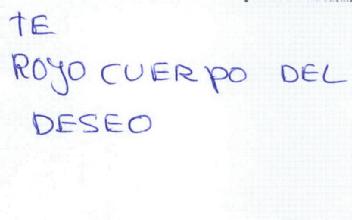 TE
ROYO CUERPO DEL
DESEO